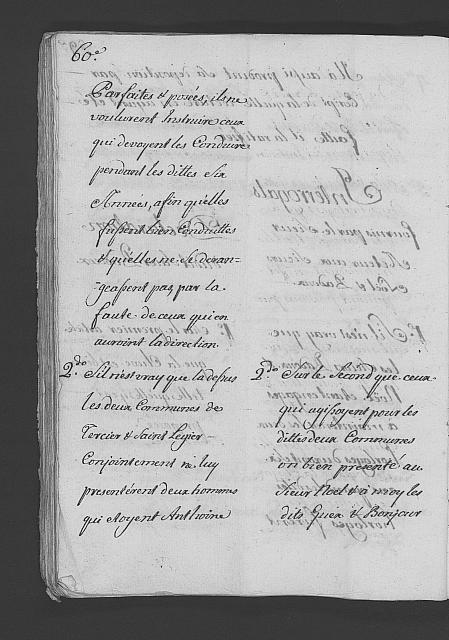 60.e
Parfaites & posées, ils ne
voulurent Instruire ceux
qui devoyent les Conduire
pendant les dittes Six
Années, afin qu'elles
fussent bien Conduittes
& quelles ne se deran-
geassent pas par la
faute de ceux qui en
auroint la direction.
2.do S'il n'est vray que la dessus
les deux Communes de
Tercier & Saint Legier
Conjointement ne luy
presentérent deux hommes
qui etoyent Anthoine
2.do Sur le Second que ceux
qui agissoyent pour les
dittes deux Communes
on bien presenté au
Sieur Noel & a moy les
dits Guex & Bonjour